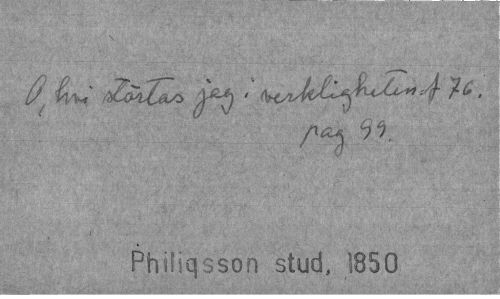 O, hvi störtas jag i verkligheten. f 76.
pag 99.
Philiqsson stud, 1850